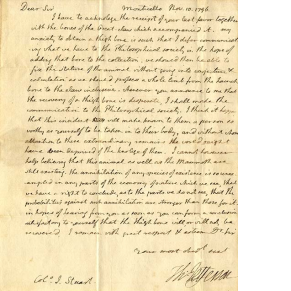 Dear Sir Monticello Nov. 10. 1796
I have to acknolege the receipt of your last favor together
with the bones of the Great claw which accompanied it. my
anxiety to obtain a thigh bone is such that I defer communicating
what we have to the Philosophical society in the hope of
adding that bone to the collection. we should then be able to
fix the stature of the animal without going into conjecture &
calculation as we should possess a whole limb from the haunch
bone to the claw inclusive. whenever you announce to me that
the recovery of a thigh bone is desperate, I shall make the
communication to the Philosophical society. I think it happy
that this incident will make known to them a person so
worthy as yourself to be taken in to their body, and without whose
attention to these extraordinary remains the world might
have been deprived of the knolege of them. I cannot however
help believing that this animal as well as the Mammoth are
still existing. the annihilation of any species of existence is so unexampled
in any parts of the economy of nature which we see, that
we have a right to conclude, as to the parts we do not see, that the
probabilities against such annihilation are stronger than those for it.
in hopes of hearing from you as soon as you can form a conclusion
satisfactory to yourself that the thigh bone will or will not be
recovered I remain with great respect & esteem Dr. Sir
your most obedt servt
Th: Jefferson
Colo. J. Stuart